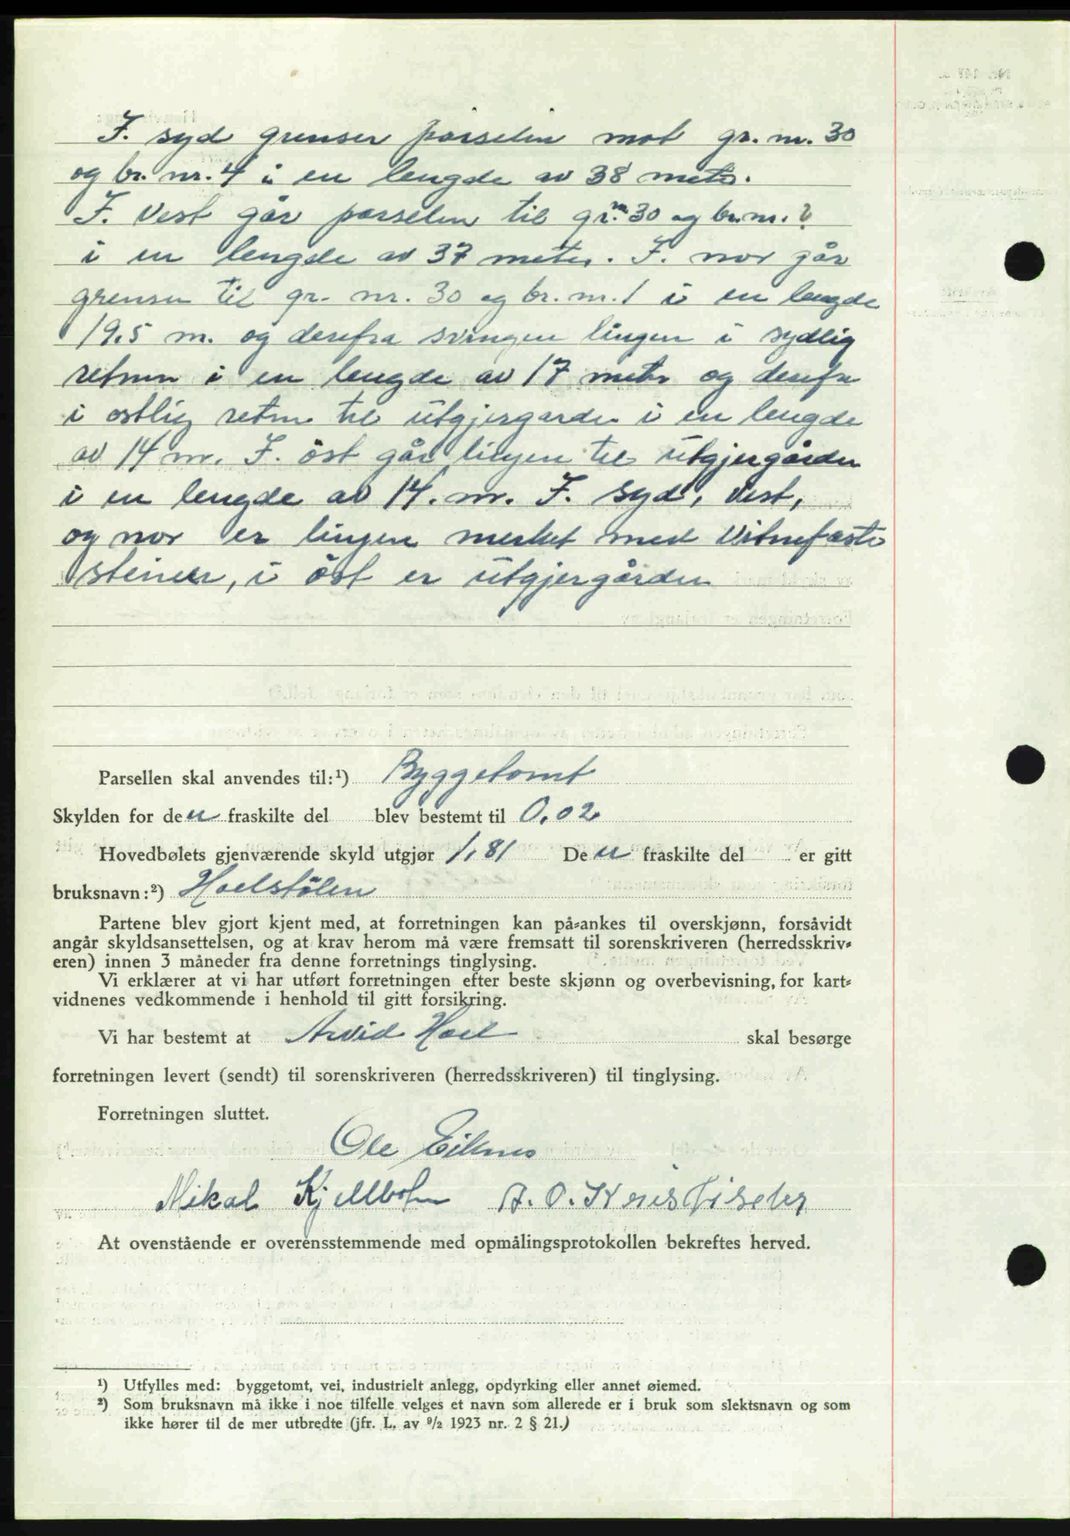 I. syd grenser parselin mot gr. nr. 30
og br. nr. 4 i en lengde av 38 meter.
I. Vest går parselen til gr. nr. 30 og br. nr. 2
i en lengde av 37 meter. I. nor går
grensen til gr. nr. 30 og br. nr. 1 i en lengde
19.5 m. og derefra svingen lingen i sydlig
retnin i en lengde av 17 meter og derefra
i ostlig retnn til utgjergarden i en lengde
av 14 m. I. öst går lingen til utgjergården
i en lengde av 14. m. I. syd, vest,
og nor er lingen merket med Vitnefaste
steiner, i öst er utgjergården
Parsellen skal anvendes til:¹) Byggetomt
Skylden for den fraskilte del blev bestemt til 0,02
Hovedbølets gjenværende skyld utgjør 1,81 Den fraskilte del er gitt
bruksnavn:²) Hoelstölen
Partene blev gjort kjent med, at forretningen kan på-ankes til overskjønn, forsåvidt
angår skyldsansettelsen, og at krav herom må være fremsatt til sorenskriveren (herredsskriv-
eren) innen 3 måneder fra denne forretnings tinglysing.
Vi erklærer at vi har utført forretningen efter beste skjønn og overbevisning, for kart-
vidnenes vedkommende i henhold til gitt forsikring.
Vi har bestemt at Arvid Hoel skal besørge
forretningen levert (sendt) til sorenskriveren (herredsskriveren) til tinglysing.
Forretningen sluttet.
Ole Eiknes
Mikal Kjellbotn A. O. Kristiseter
At ovenstående er overensstemmende med opmålingsprotokollen bekreftes herved.
¹) Utfylles med: byggetomt, vei, industrielt anlegg, opdyrking eller annet øiemed.
²) Som bruksnavn må ikke i noe tilfelle velges et navn som allerede er i bruk som slektsnavn og som
ikke hører til de mer utbredte (jfr. L. av 9/2 1923 nr. 2 § 21.)